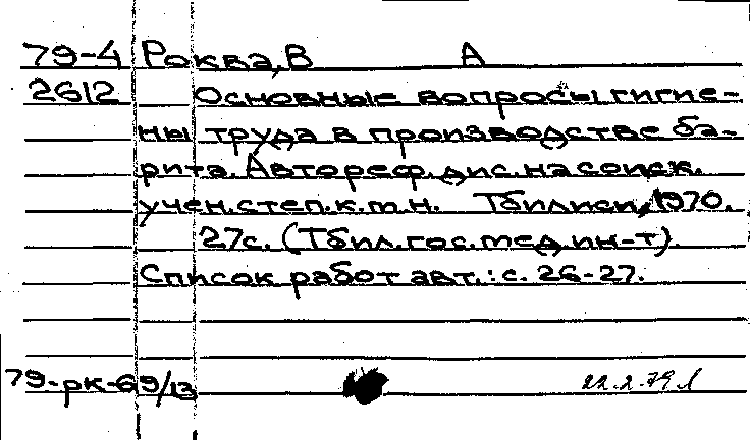 79-4 Роква, В А
2612 Основные вопросы гигие-
ны труда в производстве ба-
рита. Автореф. дис. на соиск.
учен. степ. к.т.н. Тбилиси, 1970.
27с. (Тбил. гос. мед. ин-т).
Список работ авт.: с. 26-27.
79-рк-69/13 22.2.79